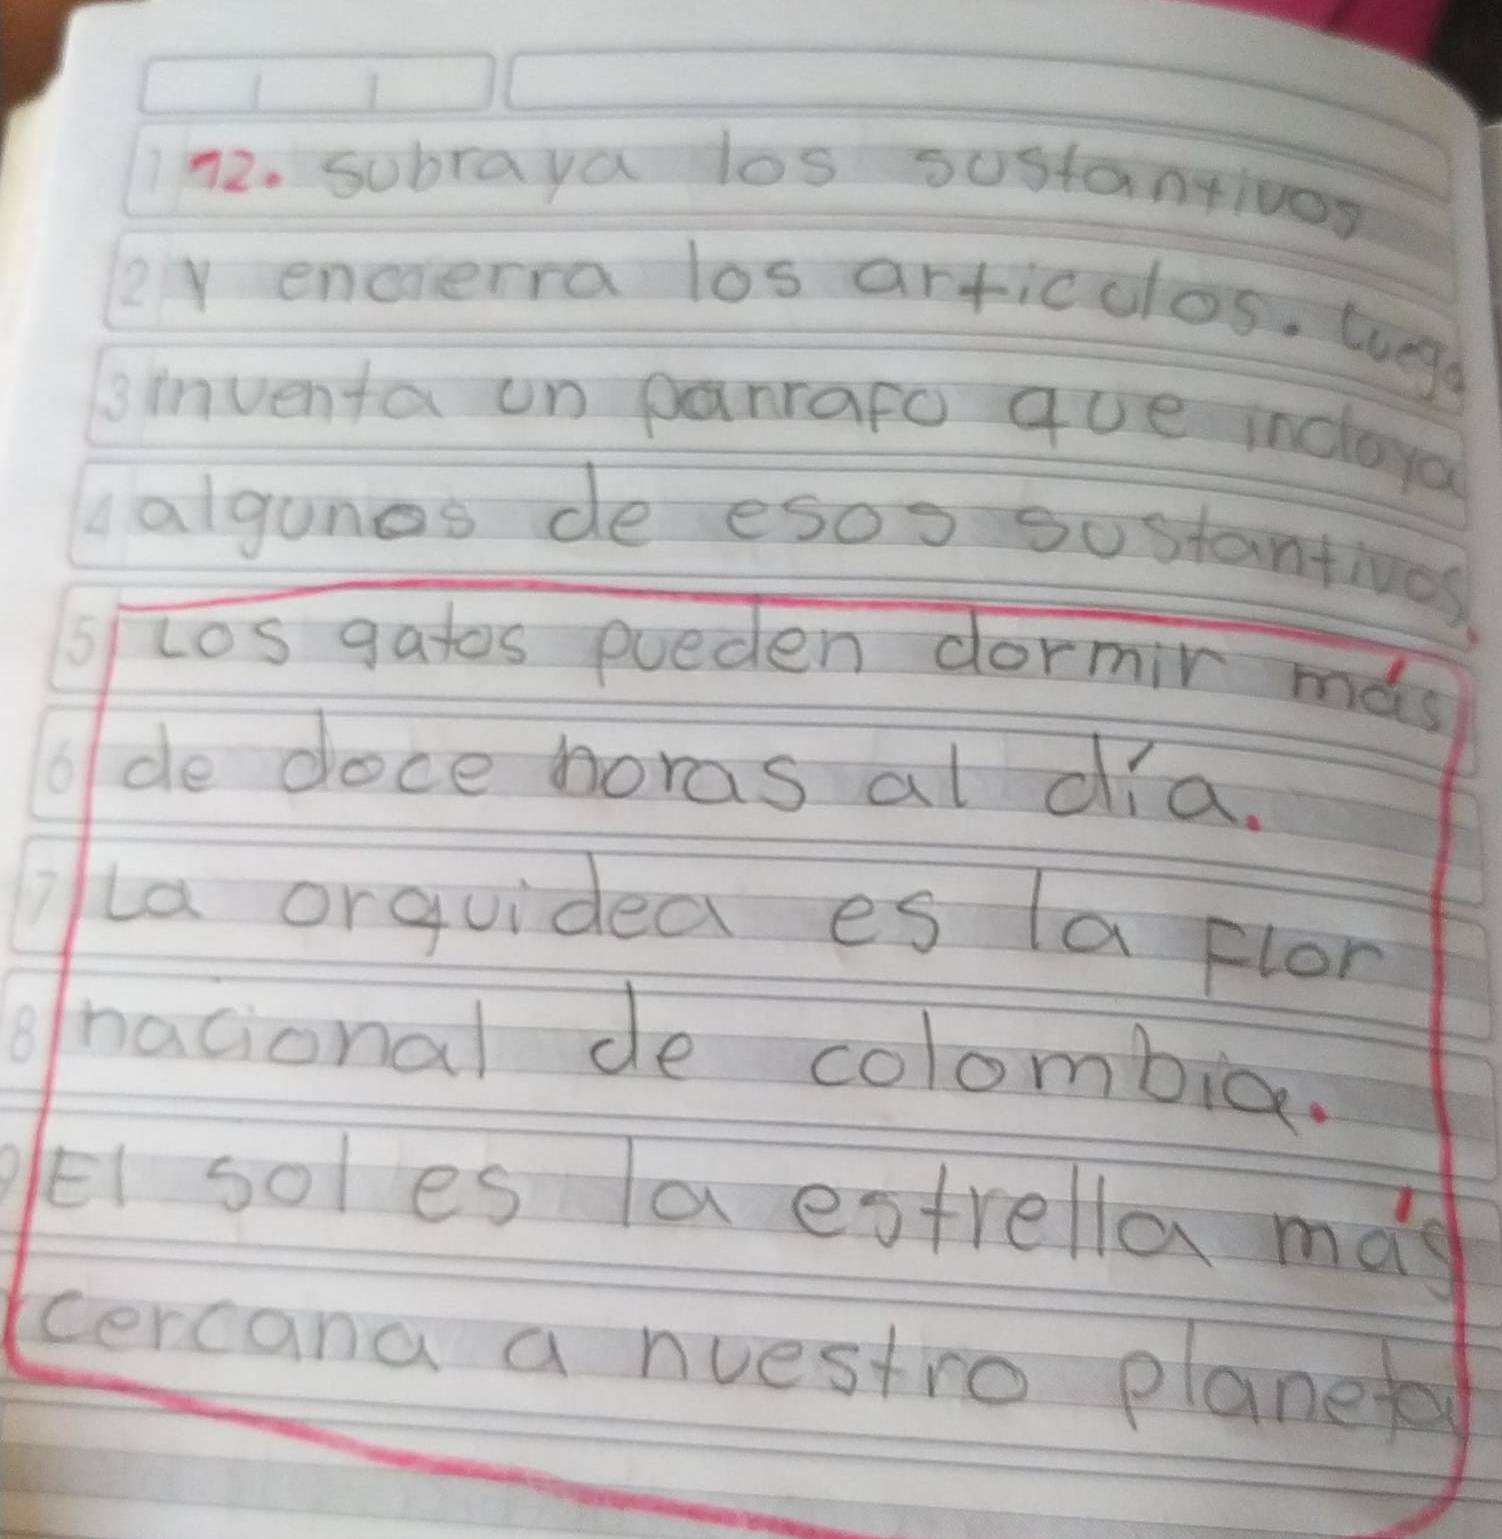 1 12. subraya los sustantivos
2 y encierra los articulos. Luego
3 inventa un parrafo que incluya
4 algunos de esos sustantivos.
5 Los gatos pueden dormir más
6 de doce horas al día.
7 La orquidea es la Flor
8 nacional de colombia.
9 El sol es la estrella más
cercana a nuestro planeta